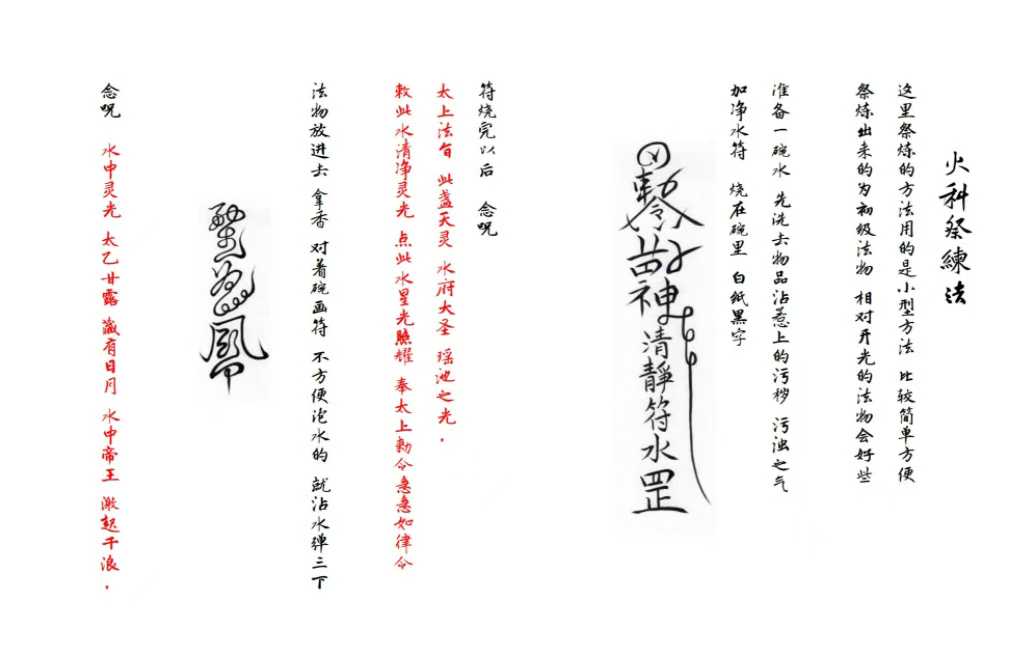 火科祭練法
这里祭炼的方法用的是小型方法 比较简单方便
祭炼出来的为初级法物 相对开光的法物会好些
准备一碗水 先洗去物品沾惹上的污秽 污浊之气
加净水符 烧在碗里 白纸黑字
苗 神 清靜符水罡
符烧完以后 念咒
太上法旨 此盏天灵 水府大圣 瑶池之光.
敕此水清净灵光 点此水星光照耀 奉太上勅令急急如律令
法物放进去 拿香 对着碗画符 不方便泡水的 就沾水弹三下
念咒 水中灵光 太乙甘露 瀛有日月 水中帝王 激起千浪.